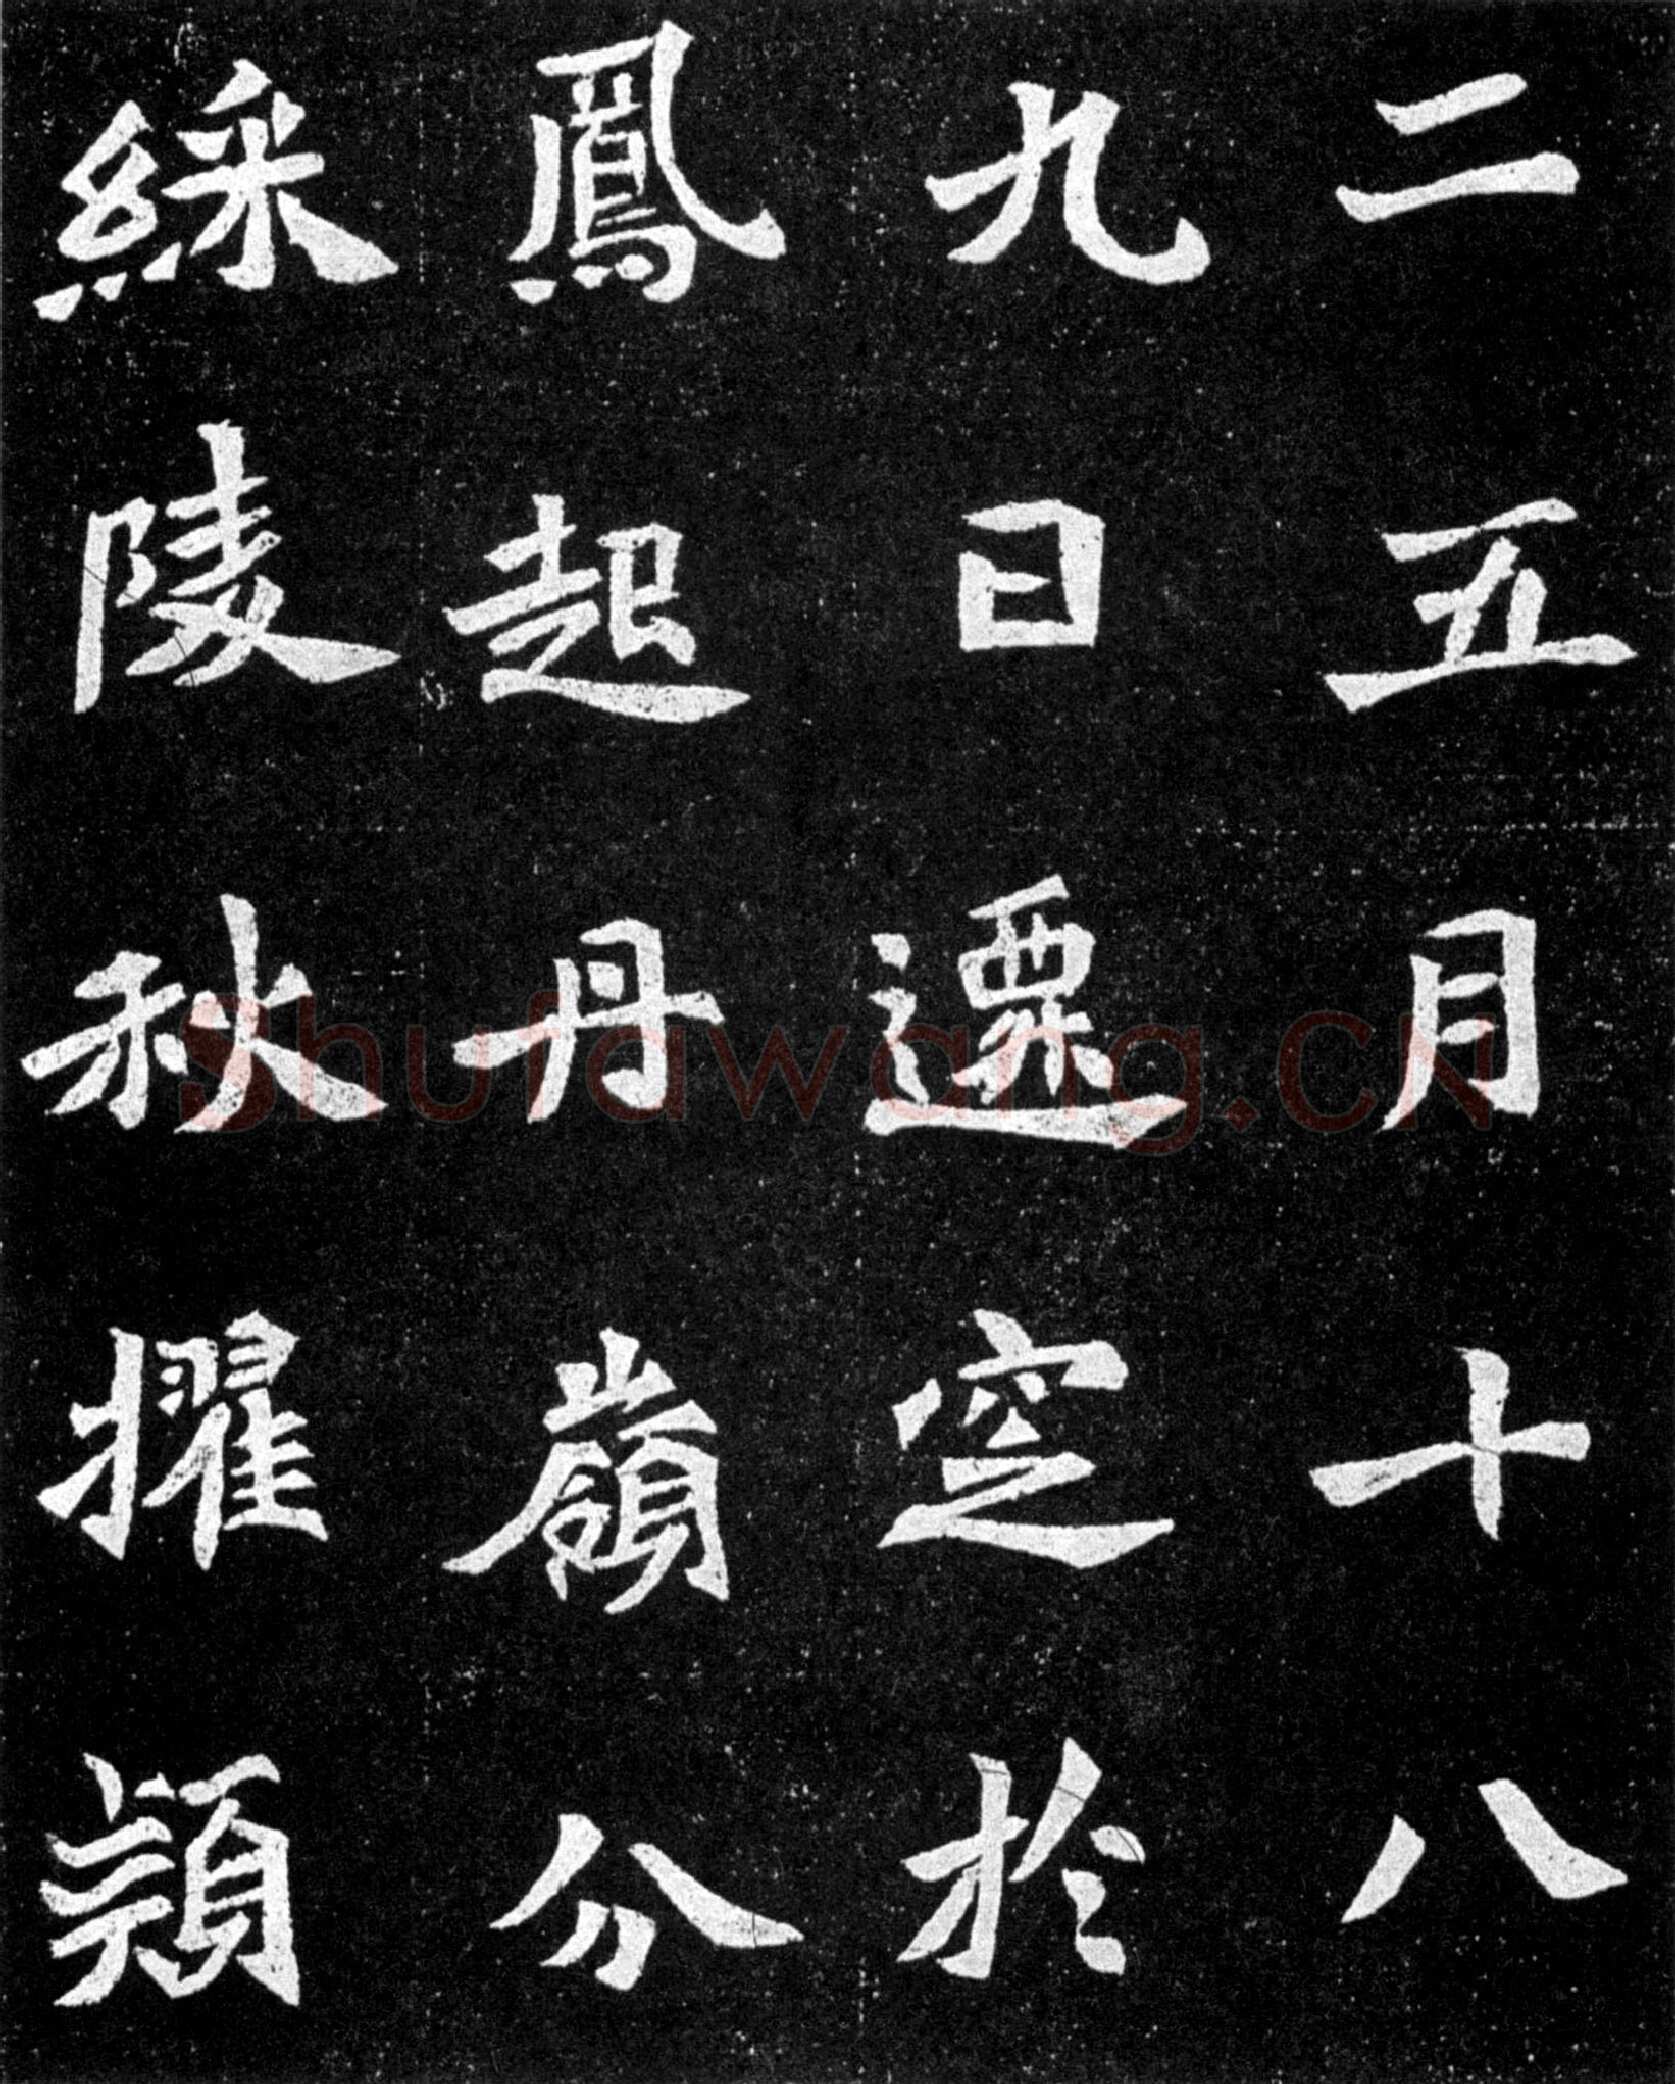 二五月十八
九日遷窆於
鳳起丹嶺分
綵陵秋擢穎
Shufawang.CN